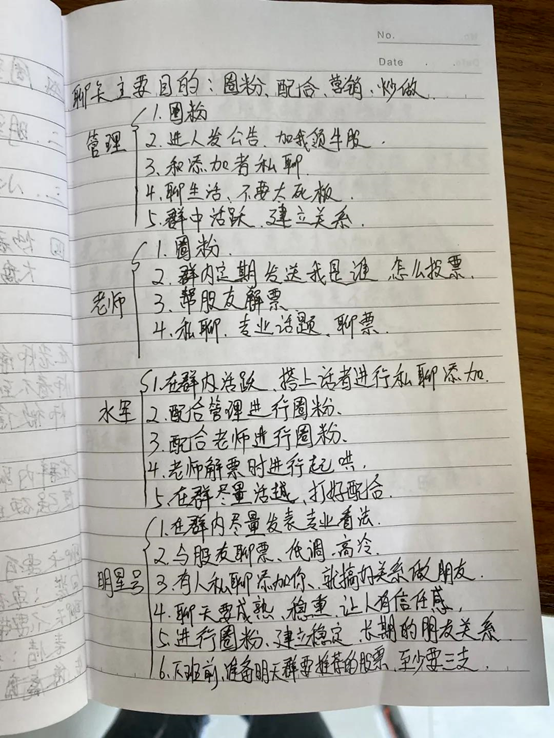 No.
Date
聊天主要目的：圈粉、配合、营销、炒做.
管理
1. 圈粉
2. 进人发公告、加我领牛股.
3. 和添加者私聊.
4. 聊生活、不要太死板.
5. 群中活跃、建立关系.
老师
1. 圈粉.
2. 群内定期发送我是谁 怎么投票.
3. 帮股友解票
4. 私聊、专业话题、聊票.
水军
1. 在群内活跃、搭上话者进行私聊添加.
2. 配合管理进行圈粉、
3. 配合老师进行圈粉.
4. 老师解票时进行起哄,
5. 在群尽量活越、打好配合.
明星号
1. 在群内尽量发表专业看法.
2. 与股友聊票、低调、高冷.
3. 有人私聊添加你、就搞好关系做朋友.
4. 聊天要成熟、稳重、让人有信任感,
5. 进行圈粉、建立稳定 长期的朋友关系
6. 下班前,准备明天群要推荐的股票、至少要三支.